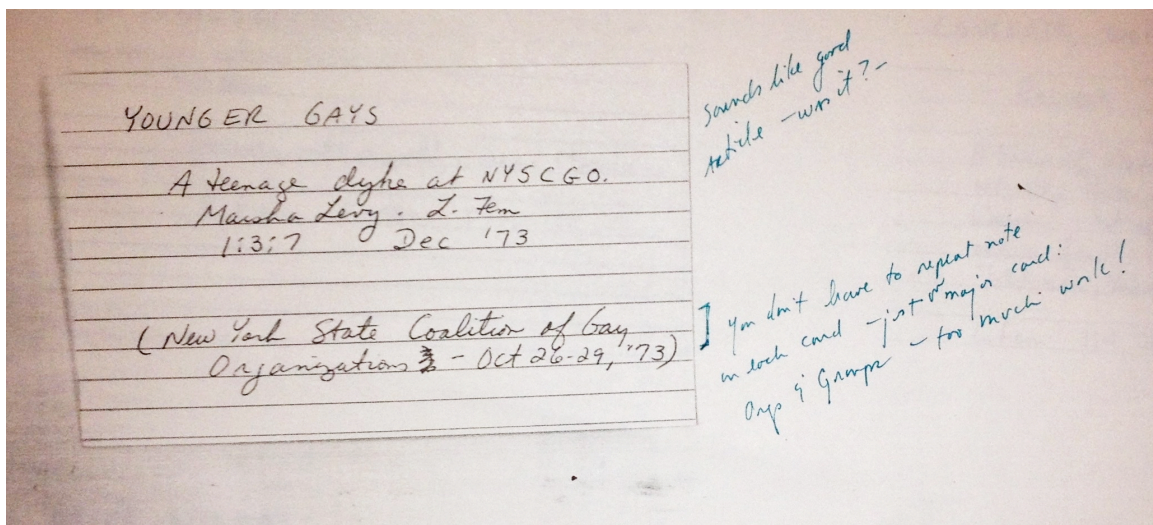 YOUNGER GAYS
A teenage dyke at NYSCGO.
Marsha Levy. L. Fem
1:3:7 Dec '73
(New York State Coalition of Gay
Organizations - Oct 26-29, '73)
Sounds like good
article - was it? -
] you don't have to repeat note
on each card - just major card:
Orgs & Groups - too much work!